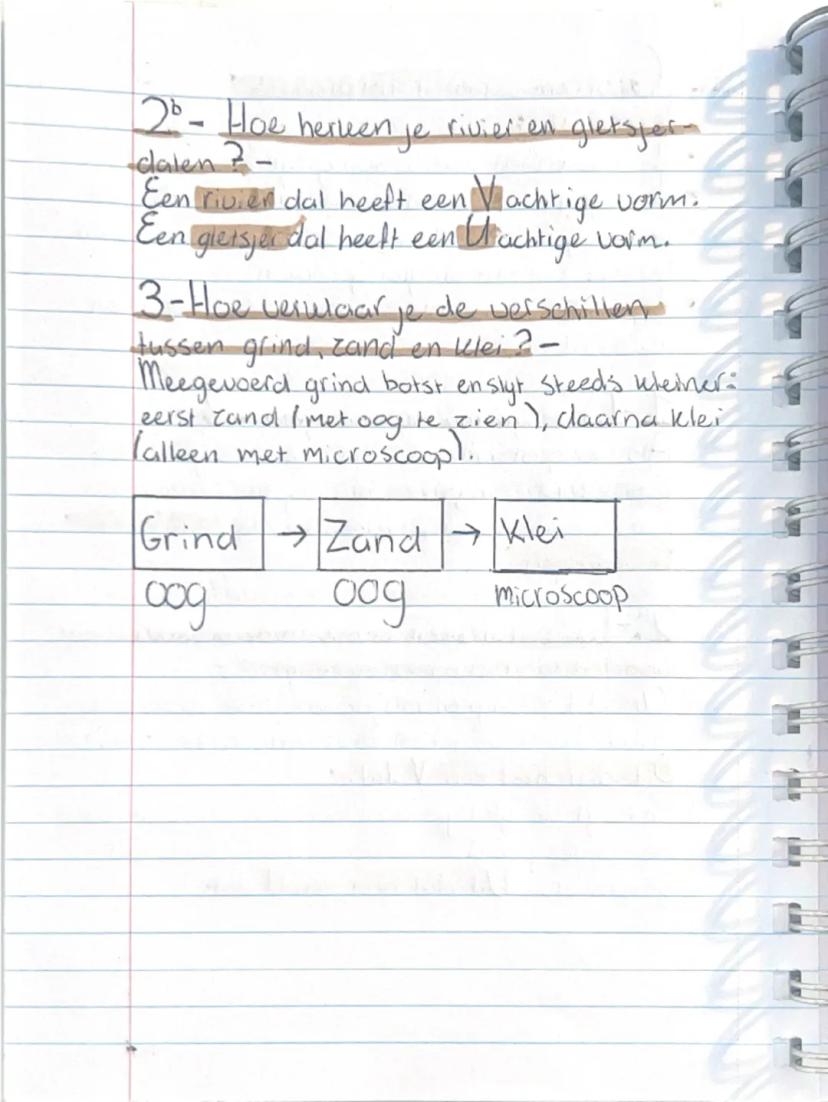 2b - Hoe herken je rivier en gletsjer-
dalen? -
Een rivier dal heeft een V achtige vorm.
Een gletsjer dal heeft een U achtige vorm.
3 - Hoe verklaar je de verschillen
tussen grind, zand en klei? -
Meegevoerd grind botst en slijt steeds kleiner:
eerst zand (met oog te zien), daarna klei
(alleen met microscoop).
Grind → Zand → Klei
oog oog microscoop